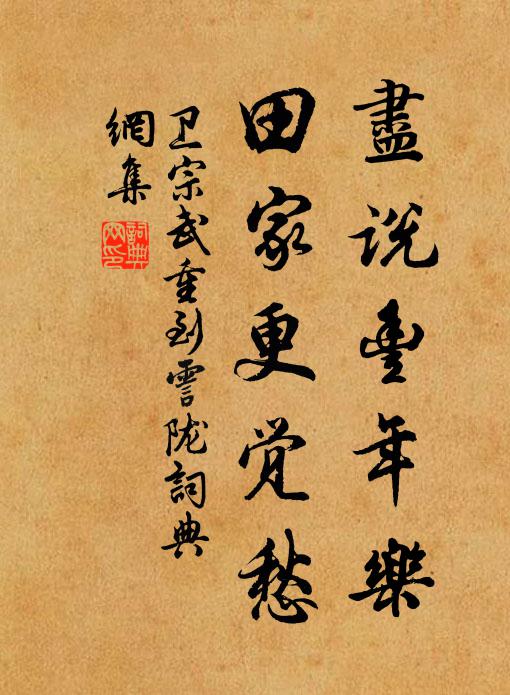 盡説豐年樂
田家更觉愁
卫宗武重到雲陇詞典
網集
詞典
网印